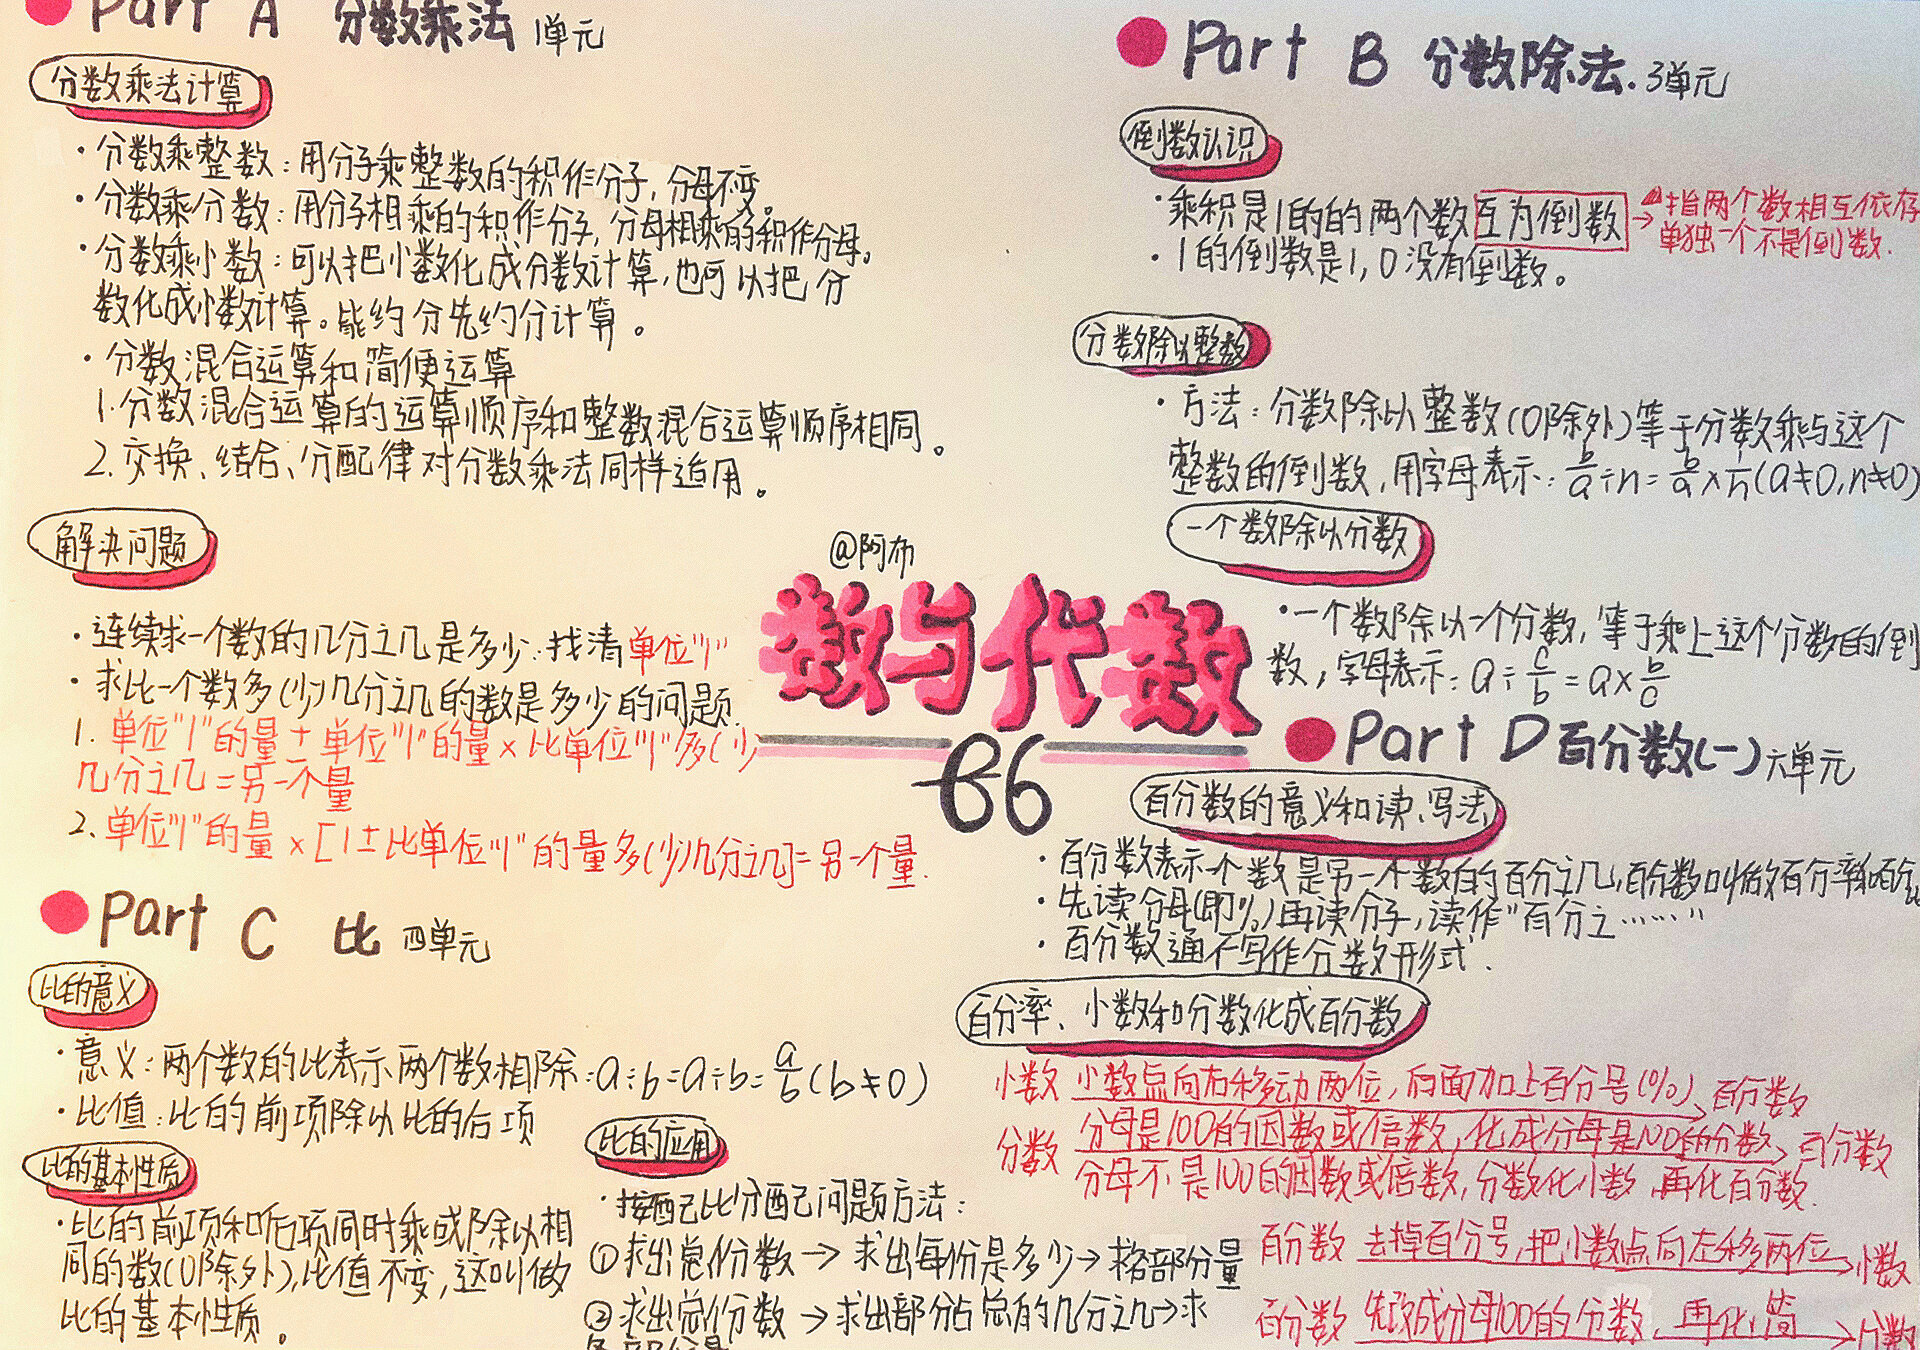 Part A 分数乘法 1单元
分数乘法计算
·分数乘整数:用分子乘整数的积作分子,分母不变。
·分数乘分数:用分子相乘的积作分子,分母相乘的积作分母。
·分数乘小数:可以把小数化成分数计算,也可以把分
数化成小数计算。能约分先约分计算。
·分数混合运算和简便运算
1.分数混合运算的运算顺序和整数混合运算顺序相同。
2.交换、结合、分配律对分数乘法同样适用。
解决问题
·连续求一个数的几分之几是多少:找清单位"1"
·求比一个数多(少)几分之几的数是多少的问题.
1.单位"1"的量±单位"1"的量×比单位"1"多(少)
几分之几=另一个量
2.单位"1"的量×[1±比单位"1"的量多(少)几分之几]=另一个量.
Part B 分数除法.3单元
倒数认识
·乘积是1的的两个数互为倒数→指两个数相互依存
单独一个不是倒数.
·1的倒数是1,0没有倒数。
分数除以整数
·方法:分数除以整数(0除外)等于分数乘与这个
整数的倒数,用字母表示:b/a÷n=b/a×1/n(a≠0,n≠0)
一个数除以分数
·一个数除以一个分数,等于乘上这个分数的倒
数,字母表示:a÷c/b=a×b/c
@阿布
数与代数
B6
Part C 比 四单元
比的意义
·意义:两个数的比表示两个数相除:a÷b=a÷b=a/b(b≠0)
·比值:比的前项除以比的后项
比的基本性质
·比的前项和后项同时乘或除以相
同的数(0除外),比值不变,这叫做
比的基本性质。
比的应用
·按配比分配问题方法:
①求出总份数→求出每份是多少→求各部分量
②求出总份数→求出部分占总的几分之几→求
各部分量
Part D 百分数(一)六单元
百分数的意义和读、写法
·百分数表示一个数是另一个数的百分之几,百分数叫做百分率和百分比
·先读分母(即%)再读分子,读作"百分之……"
·百分数通不写作分数形式.
百分率、小数和分数化成百分数
小数 小数点向右移动两位,后面加上百分号(%)→百分数
分数 分母是100的因数或倍数,化成分母是100的分数→百分数
分母不是100的因数或倍数,分数化小数,再化百分数.
百分数 去掉百分号,把小数点向左移两位→小数
百分数 先改成分母100的分数,再化简→分数